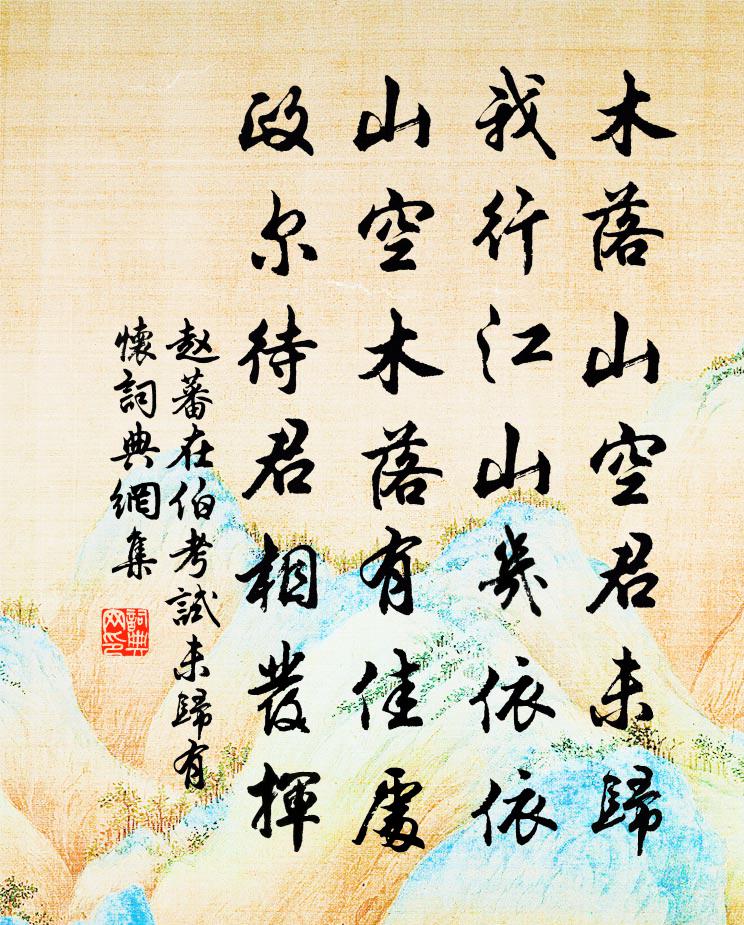 木落山空君未歸
我行江山幾依依
山空木落有佳處
政尔待君相發揮
赵蕃在伯考試未歸有
懷詞典網集
詞典
网印